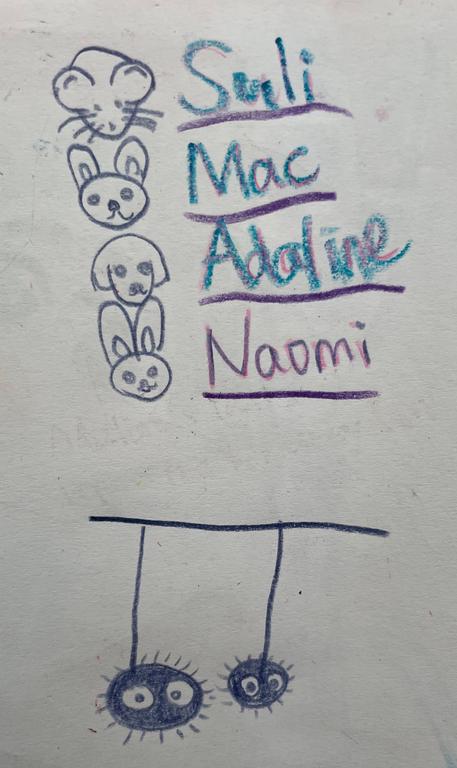 Suli
Mac
Adaline
Naomi